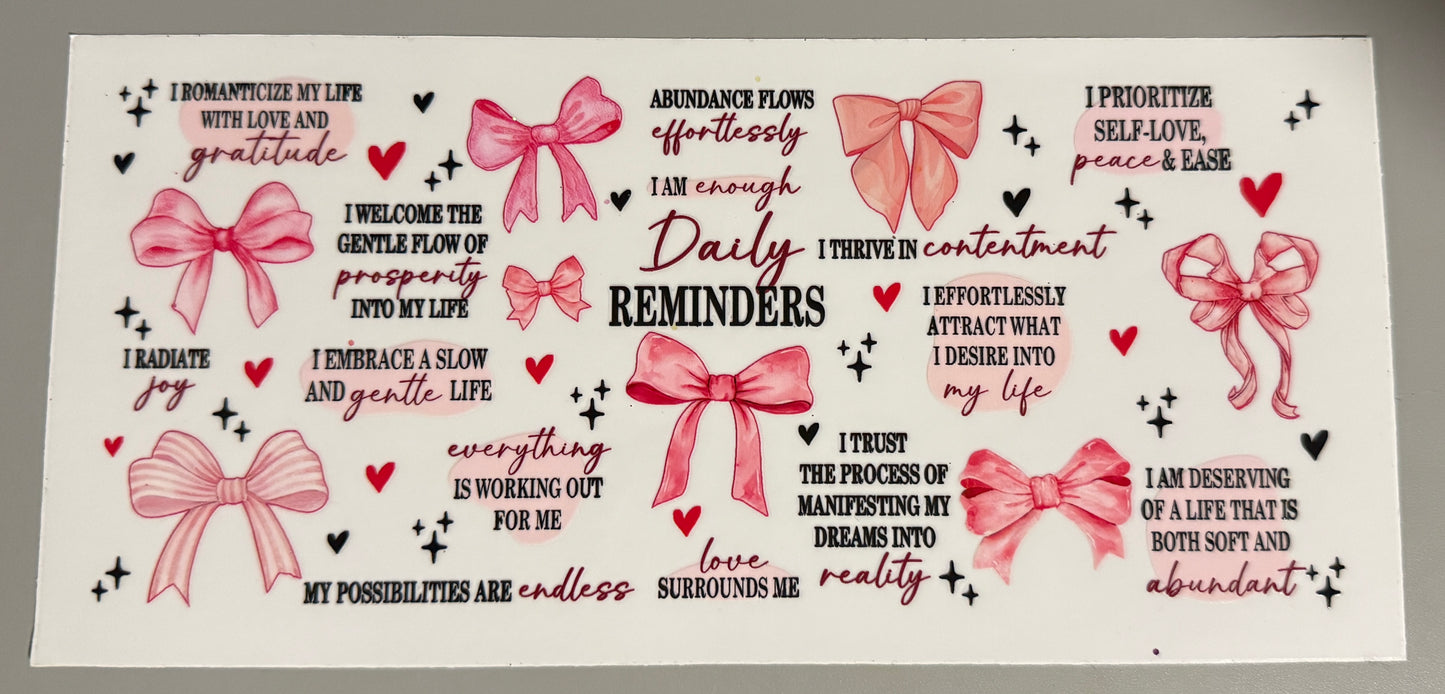 I ROMANTICIZE MY LIFE
WITH LOVE AND
gratitude
I WELCOME THE
GENTLE FLOW OF
prosperity
INTO MY LIFE
I RADIATE
joy
I EMBRACE A SLOW
AND gentle LIFE
everything
IS WORKING OUT
FOR ME
MY POSSIBILITIES ARE endless
ABUNDANCE FLOWS
effortlessly
I AM enough
Daily
REMINDERS
love
SURROUNDS ME
I PRIORITIZE
SELF-LOVE,
peace & EASE
I THRIVE IN contentment
I EFFORTLESSLY
ATTRACT WHAT
I DESIRE INTO
my life
I TRUST
THE PROCESS OF
MANIFESTING MY
DREAMS INTO
reality
I AM DESERVING
OF A LIFE THAT IS
BOTH SOFT AND
abundant